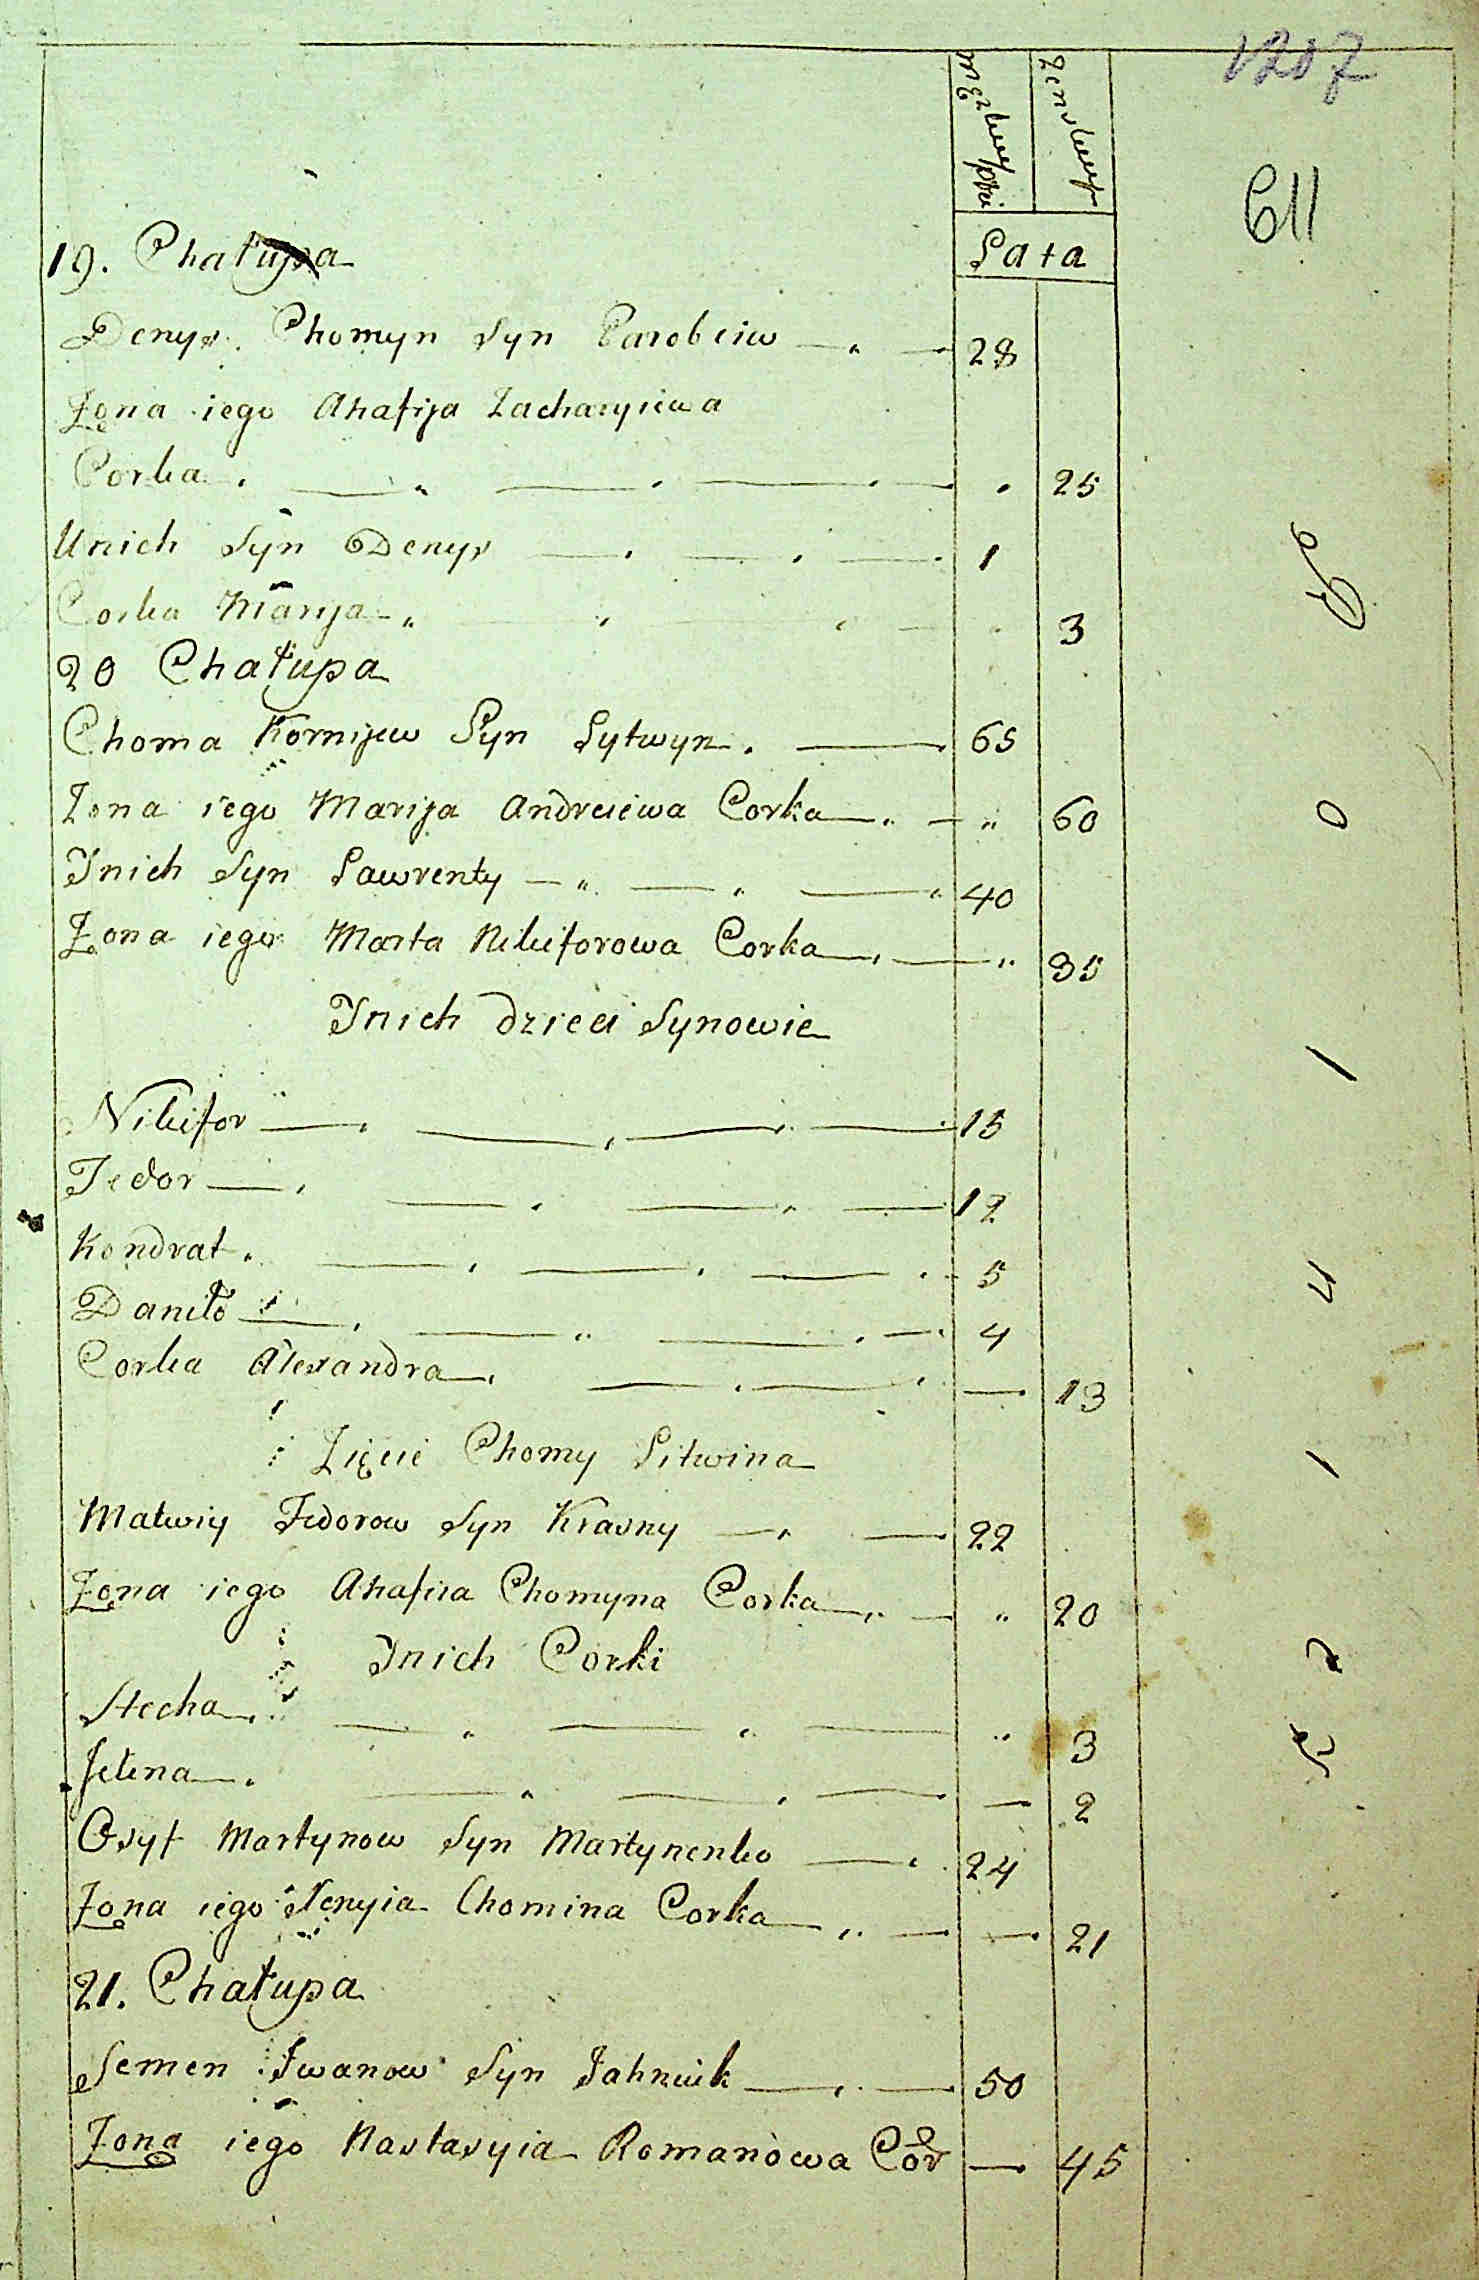 1207
Męzkiey płci
Zenskiey
119
Lata
19. Chałupa
Denys Chomyn Syn Parobciw 28
Zona iego Ahafija Zacharyiewa
Corka 25
Unich Syn Denys 1
Corka Marija 3
20 Chałupa
Choma Kornijew Syn Lytwyn 65
Zona iego Marija Andreiewa Corka 60
Inich Syn Lawrenty 40
Zona iego Marta Nikiforowa Corka 35
Inich dzieci Synowie
Nikifor 15
Fedor 12
Kondrat 5
Daniło 4
Corka Alexandra 13
Zięcie Chomy Litwina
Matwiy Fedorow Syn Krasny 22
Zona iego Ahafiia Chomyna Corka 20
Inich Corki
Stecha 3
Jelena 2
Osyf Martynow Syn Martynenko 24
Zona iego Xenyia Chomina Corka 21
21. Chałupa
Semen Iwanow Syn Jahniuk 50
Zona iego Nastasyia Romanowa Cor 45